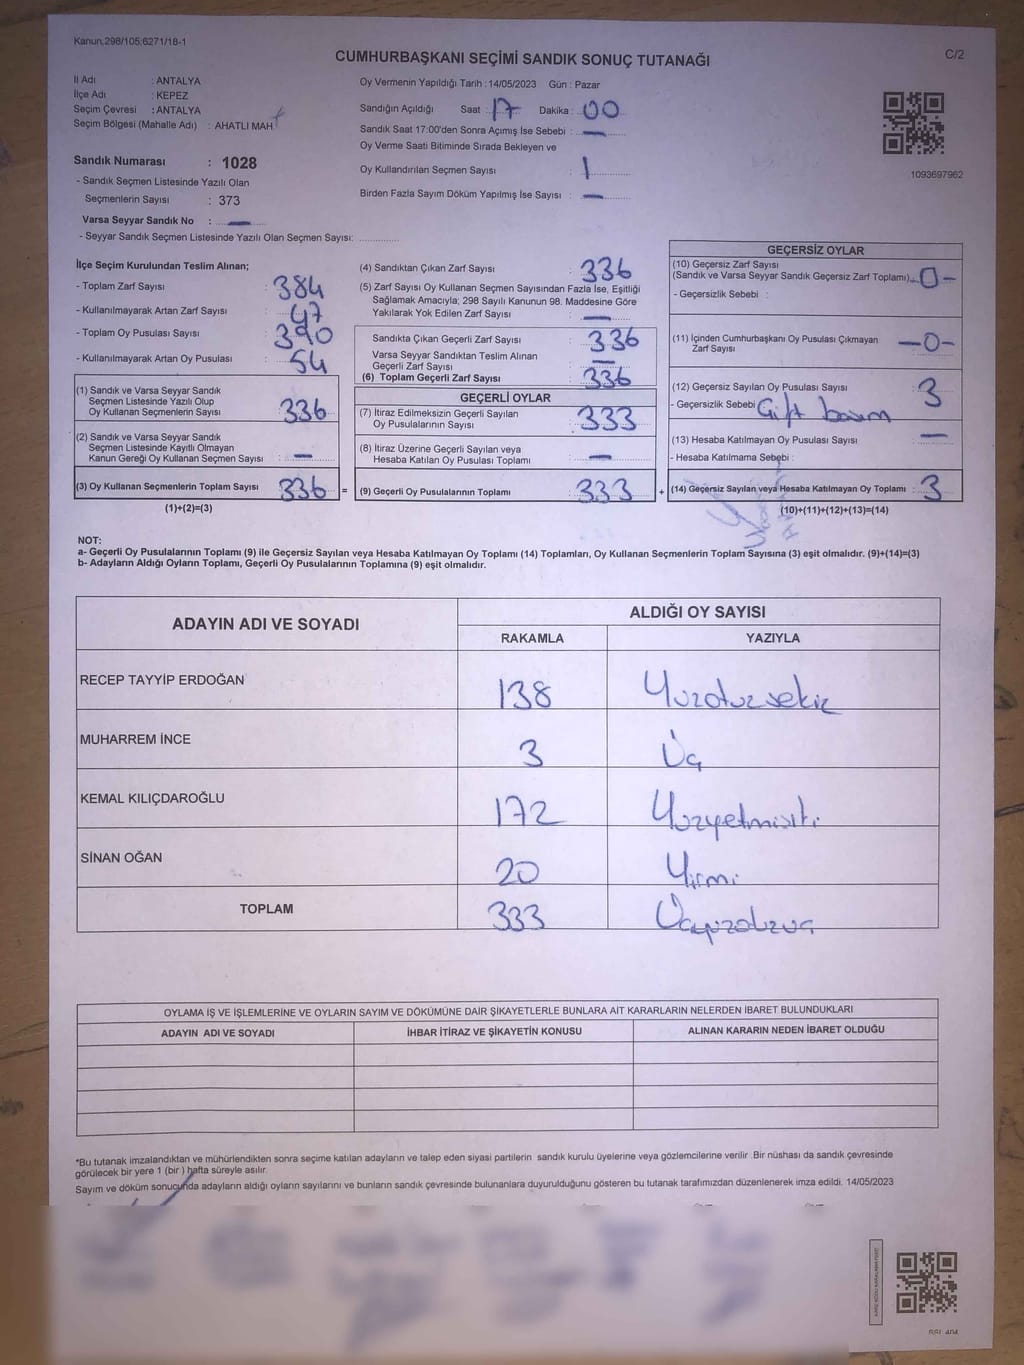 Kanun,298/105,6271/18-1
C/2
CUMHURBAŞKANI SEÇİMİ SANDIK SONUÇ TUTANAĞI
İl Adı : ANTALYA
İlçe Adı : KEPEZ
Seçim Çevresi : ANTALYA
Seçim Bölgesi (Mahalle Adı) : AHATLI MAH
Sandık Numarası : 1028
- Sandık Seçmen Listesinde Yazılı Olan
Seçmenlerin Sayısı : 373
Varsa Seyyar Sandık No : —
- Seyyar Sandık Seçmen Listesinde Yazılı Olan Seçmen Sayısı: ..............
Oy Vermenin Yapıldığı Tarih : 14/05/2023 Gün : Pazar
Sandığın Açıldığı Saat : 17 Dakika : 00
Sandık Saat 17:00'den Sonra Açımış İse Sebebi : —
Oy Verme Saati Bitiminde Sırada Bekleyen ve
Oy Kullandırılan Seçmen Sayısı : 1
Birden Fazla Sayım Döküm Yapılmış İse Sayısı : —
1093697962
İlçe Seçim Kurulundan Teslim Alınan;
- Toplam Zarf Sayısı : 384
- Kullanılmayarak Artan Zarf Sayısı : 47
- Toplam Oy Pusulası Sayısı : 390
- Kullanılmayarak Artan Oy Pusulası : 54
(1) Sandık ve Varsa Seyyar Sandık
Seçmen Listesinde Yazılı Olup
Oy Kullanan Seçmenlerin Sayısı : 336
(2) Sandık ve Varsa Seyyar Sandık
Seçmen Listesinde Kayıtlı Olmayan
Kanun Gereği Oy Kullanan Seçmen Sayısı : —
(3) Oy Kullanan Seçmenlerin Toplam Sayısı : 336 =
(1)+(2)=(3)
(4) Sandıktan Çıkan Zarf Sayısı : 336
(5) Zarf Sayısı Oy Kullanan Seçmen Sayısından Fazla İse, Eşitliği
Sağlamak Amacıyla; 298 Sayılı Kanunun 98. Maddesine Göre
Yakılarak Yok Edilen Zarf Sayısı : —
Sandıkta Çıkan Geçerli Zarf Sayısı : 336
Varsa Seyyar Sandıktan Teslim Alınan
Geçerli Zarf Sayısı : —
(6) Toplam Geçerli Zarf Sayısı : 336
GEÇERLİ OYLAR
(7) İtiraz Edilmeksizin Geçerli Sayılan
Oy Pusulalarının Sayısı : 333
(8) İtiraz Üzerine Geçerli Sayılan veya
Hesaba Katılan Oy Pusulası Toplamı : —
(9) Geçerli Oy Pusulalarının Toplamı : 333 +
GEÇERSİZ OYLAR
(10) Geçersiz Zarf Sayısı
(Sandık ve Varsa Seyyar Sandık Geçersiz Zarf Toplamı) -0-
- Geçersizlik Sebebi :
(11) İçinden Cumhurbaşkanı Oy Pusulası Çıkmayan
Zarf Sayısı —0-
(12) Geçersiz Sayılan Oy Pusulası Sayısı : 3
- Geçersizlik Sebebi Çift basım
(13) Hesaba Katılmayan Oy Pusulası Sayısı : —
- Hesaba Katılmama Sebebi :
(14) Geçersiz Sayılan veya Hesaba Katılmayan Oy Toplamı : 3
(10)+(11)+(12)+(13)=(14)
NOT:
a- Geçerli Oy Pusulalarının Toplamı (9) ile Geçersiz Sayılan veya Hesaba Katılmayan Oy Toplamı (14) Toplamları, Oy Kullanan Seçmenlerin Toplam Sayısına (3) eşit olmalıdır. (9)+(14)=(3)
b- Adayların Aldığı Oyların Toplamı, Geçerli Oy Pusulalarının Toplamına (9) eşit olmalıdır.
ADAYIN ADI VE SOYADI ALDIĞI OY SAYISI
RAKAMLA YAZIYLA
RECEP TAYYİP ERDOĞAN 138 Yüzotuzsekiz
MUHARREM İNCE 3 Üç
KEMAL KILIÇDAROĞLU 172 Yüzyetmişiki
SİNAN OĞAN 20 Yirmi
TOPLAM 333 Üçyüzotuzüç
OYLAMA İŞ VE İŞLEMLERİNE VE OYLARIN SAYIM VE DÖKÜMÜNE DAİR ŞİKAYETLERLE BUNLARA AİT KARARLARIN NELERDEN İBARET BULUNDUKLARI
ADAYIN ADI VE SOYADI İHBAR İTİRAZ VE ŞİKAYETİN KONUSU ALINAN KARARIN NEDEN İBARET OLDUĞU
*Bu tutanak imzalandıktan ve mühürlendikten sonra seçime katılan adayların ve talep eden siyasi partilerin sandık kurulu üyelerine veya gözlemcilerine verilir .Bir nüshası da sandık çevresinde
görülecek bir yere 1 (bir ) hafta süreyle asılır.
Sayım ve döküm sonucunda adayların aldığı oyların sayılarını ve bunların sandık çevresinde bulunanlara duyurulduğunu gösteren bu tutanak tarafımızdan düzenlenerek imza edildi. 14/05/2023